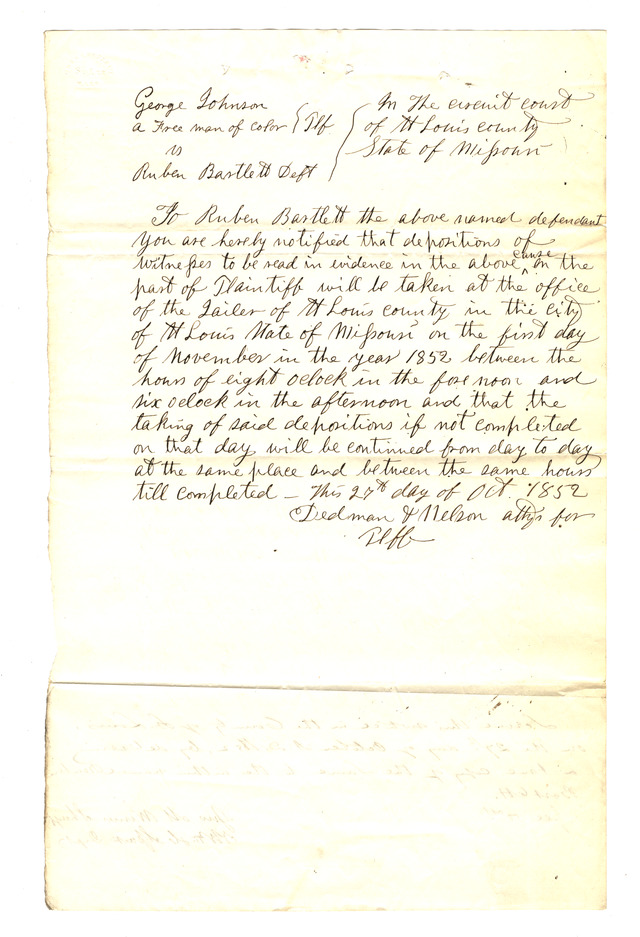 George Johnson
a Free man of color } Plf
vs
Ruben Bartlett Deft
In The circuit court
of St Louis county
State of Missouri
To Ruben Bartlett the above named defendant
You are hereby notified that depositions of
witnesses to be read in evidence in the above cause on the
part of Plaintiff will be taken at the office
of the Jailer of St Louis county in the city
of St Louis State of Missouri on the first day
of November in the year 1852 between the
hours of eight oclock in the fore noon and
six oclock in the afternoon and that the
taking of said depositions if not completed
on that day will be continued from day to day
at the same place and between the same hours
till completed – This 27th day of Oct. 1852
Dedman & Nelson attys for
Plff